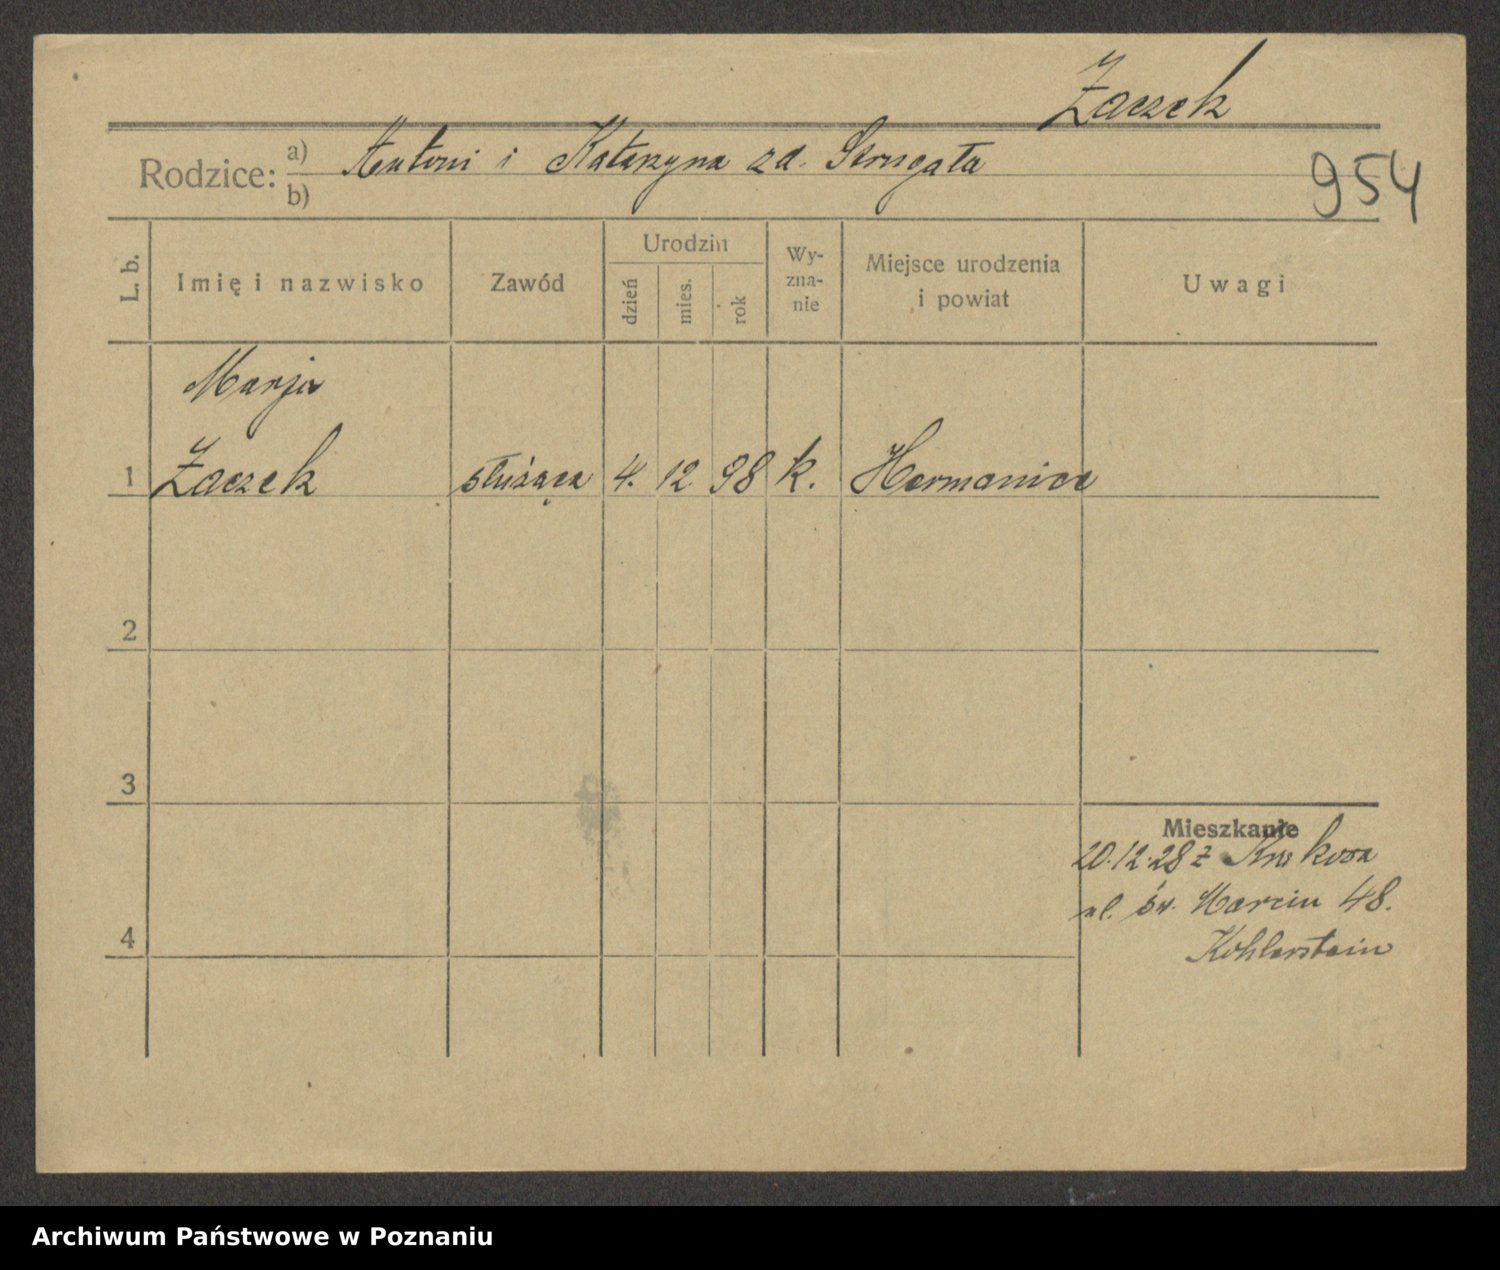 Żaczek
Rodzice: a) Antoni i Katarzyna zd. Strugała
b)
954
L. b.
Imię i nazwisko
Zawód
Urodzin
dzień
mies.
rok
Wy-
zna-
nie
Miejsce urodzenia
i powiat
Uwagi
Marja
1 Żaczek służąca 4. 12 98 k. Hermanice
2
3
4
Mieszkanie
20.12.28 z
ul. św. Marcin 48.
Kohlerstein
Archiwum Państwowe w Poznaniu